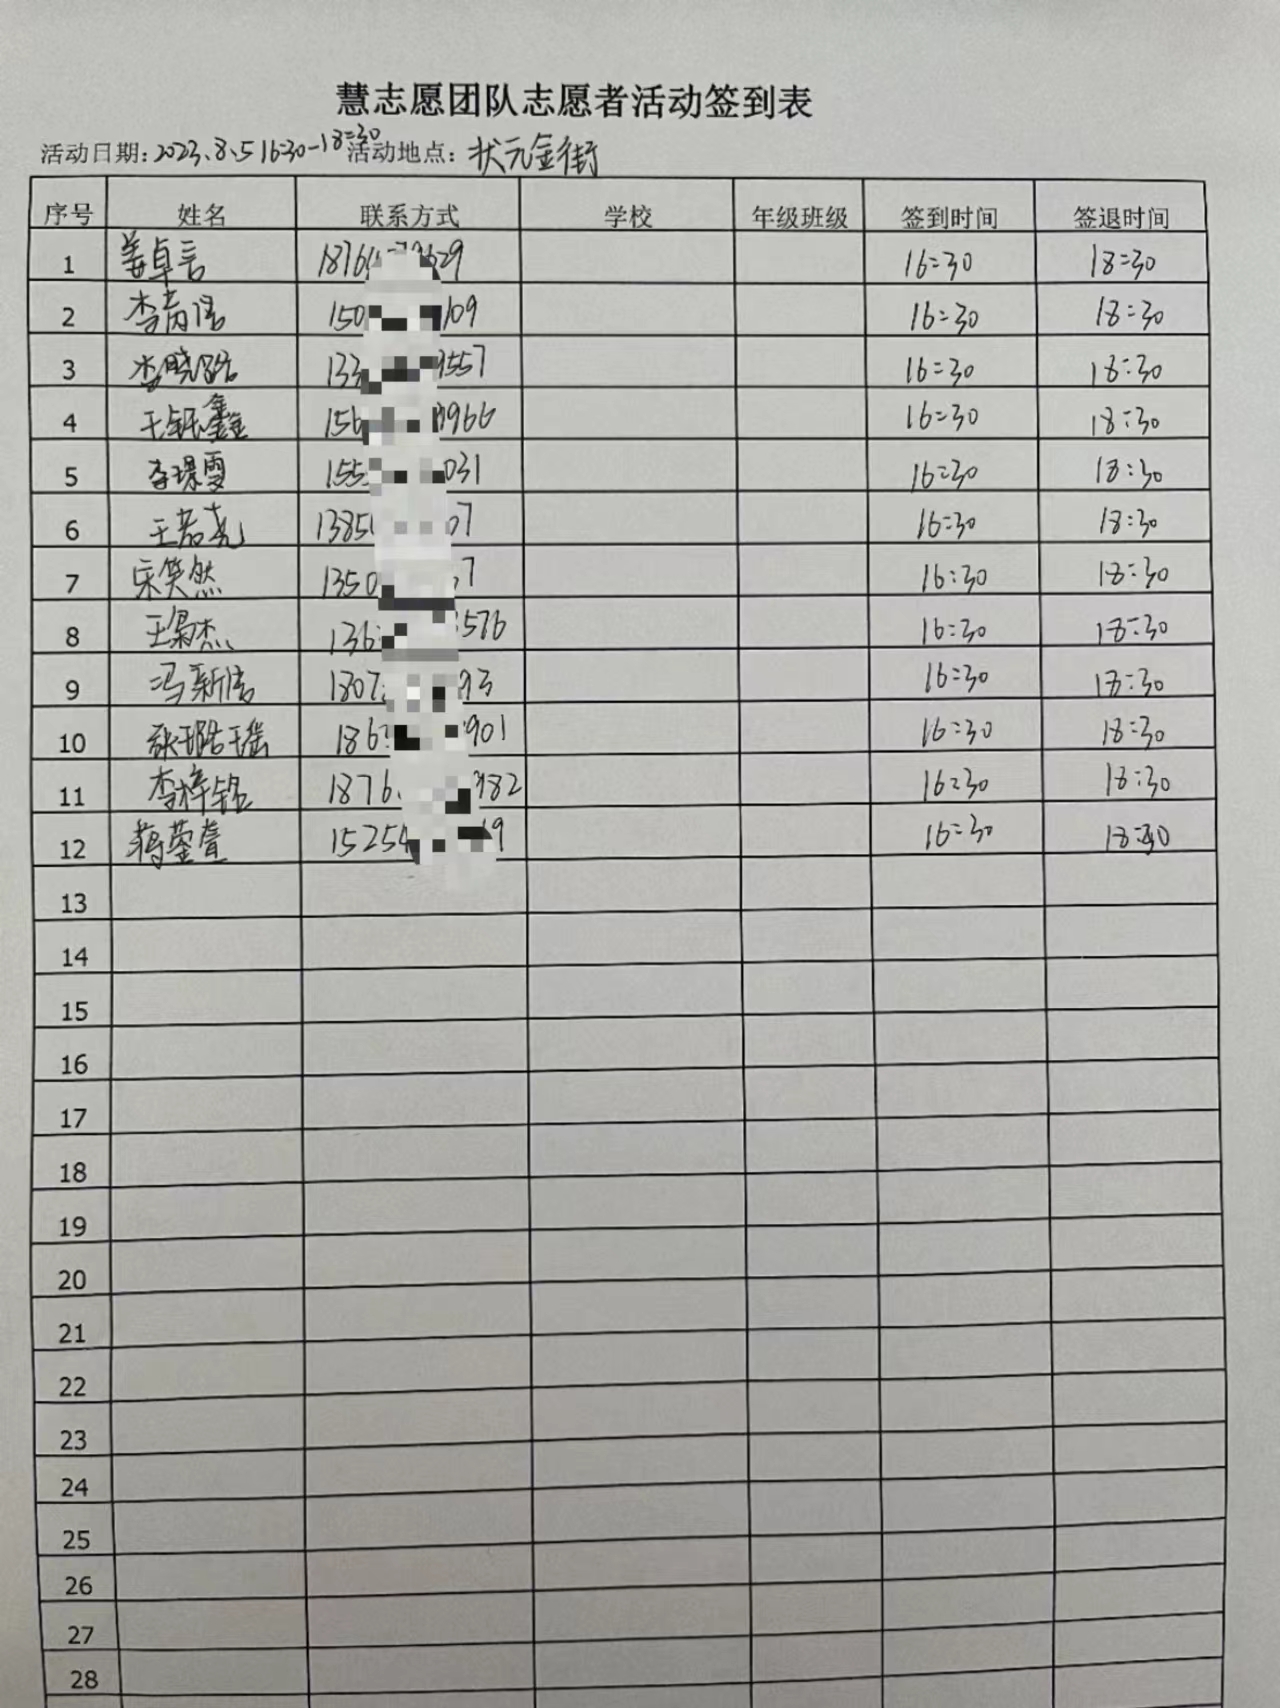 慧志愿团队志愿者活动签到表
活动日期：2023.8.5 16:30-18:30 活动地点：状元金街
序号 姓名 联系方式 学校 年级班级 签到时间 签退时间
1 姜卓言 16:30 18:30
2 150 109 16:30 18:30
3 李晓璐 133 557 16:30 18:30
4 王钰鑫 156 966 16:30 18:30
5 李璟雯 155 031 16:30 18:30
6 王若尧 1385 07 16:30 18:30
7 宋笑然 1350 7 16:30 18:30
8 136 576 16:30 18:30
9 冯新倍 1807 93 16:30 18:30
10 张璐瑶 186 901 16:30 18:30
11 李梓铭 1876 982 16:30 18:30
12 15254 19 16:30 18:30
13
14
15
16
17
18
19
20
21
22
23
24
25
26
27
28